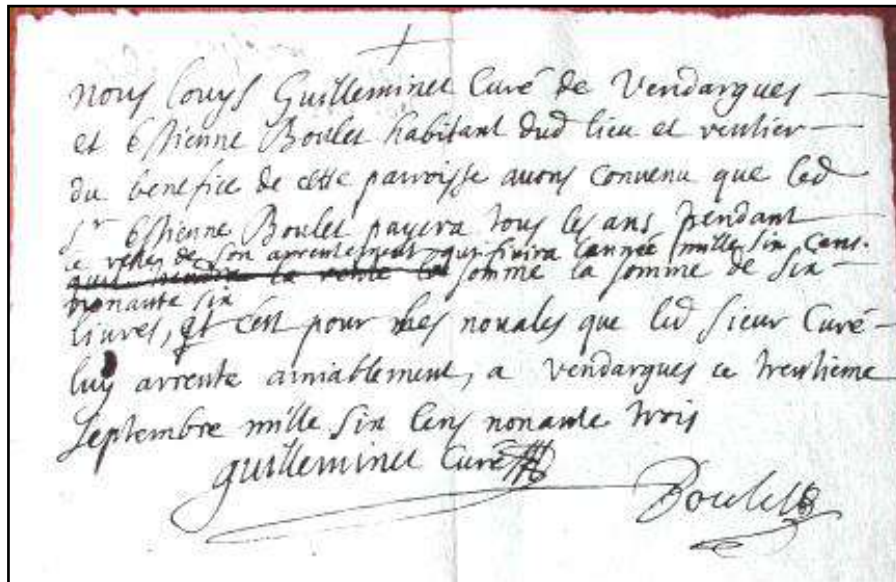 nous louys Guilleminet Curé de Vendargues
et estienne Boulet habitant dud lieu et rentier
du benefice de cette parroisse avons convenu que led
Sr estienne Boulet payera tous les ans pendant
ce restes de son arrentement qui finira l'année mille six cens
nonante six
la somme la somme de six
livres, et c'est pour les novales que led sieur Curé
luy arrente amiablement, a vendargues ce trentieme
septembre mille six cens nonante trois
guilleminet Curé
Boulet